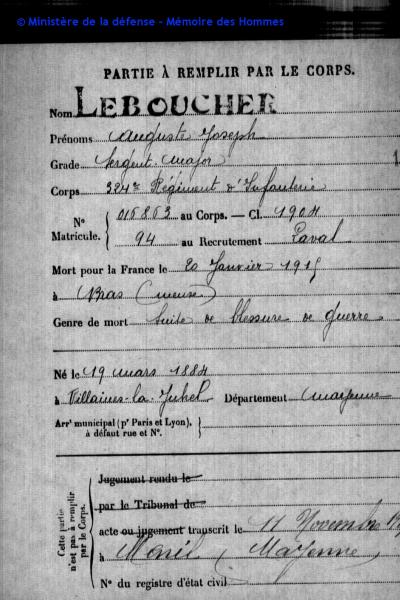 © Ministère de la défense - Mémoire des Hommes
PARTIE À REMPLIR PAR LE CORPS.
Nom LEBOUCHER
Prénoms Auguste Joseph
Grade Sergent-major
1
Corps 324e Régiment d'Infanterie
N° Matricule. { 016863 au Corps. — Cl. 1904
94 au Recrutement Laval
Mort pour la France le 20 Janvier 1915
à Bras (meuse)
Genre de mort Suite de blessure de guerre
Né le 19 mars 1884
à Villaines-la-Juhel Département Mayenne
Arrt municipal (pr Paris et Lyon), à défaut rue et N°.
Cette partie n'est pas à remplir par le Corps.
Jugement rendu le
par le Tribunal de
acte ou jugement transcrit le 11 Novembre
à (Mayenne)
N° du registre d'état civil